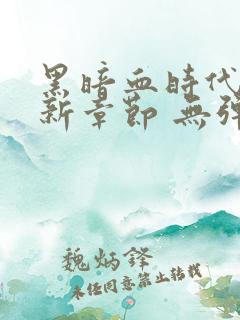 黑暗血時代
新章節 無彈
魏炳鋒
未经同意禁止转载